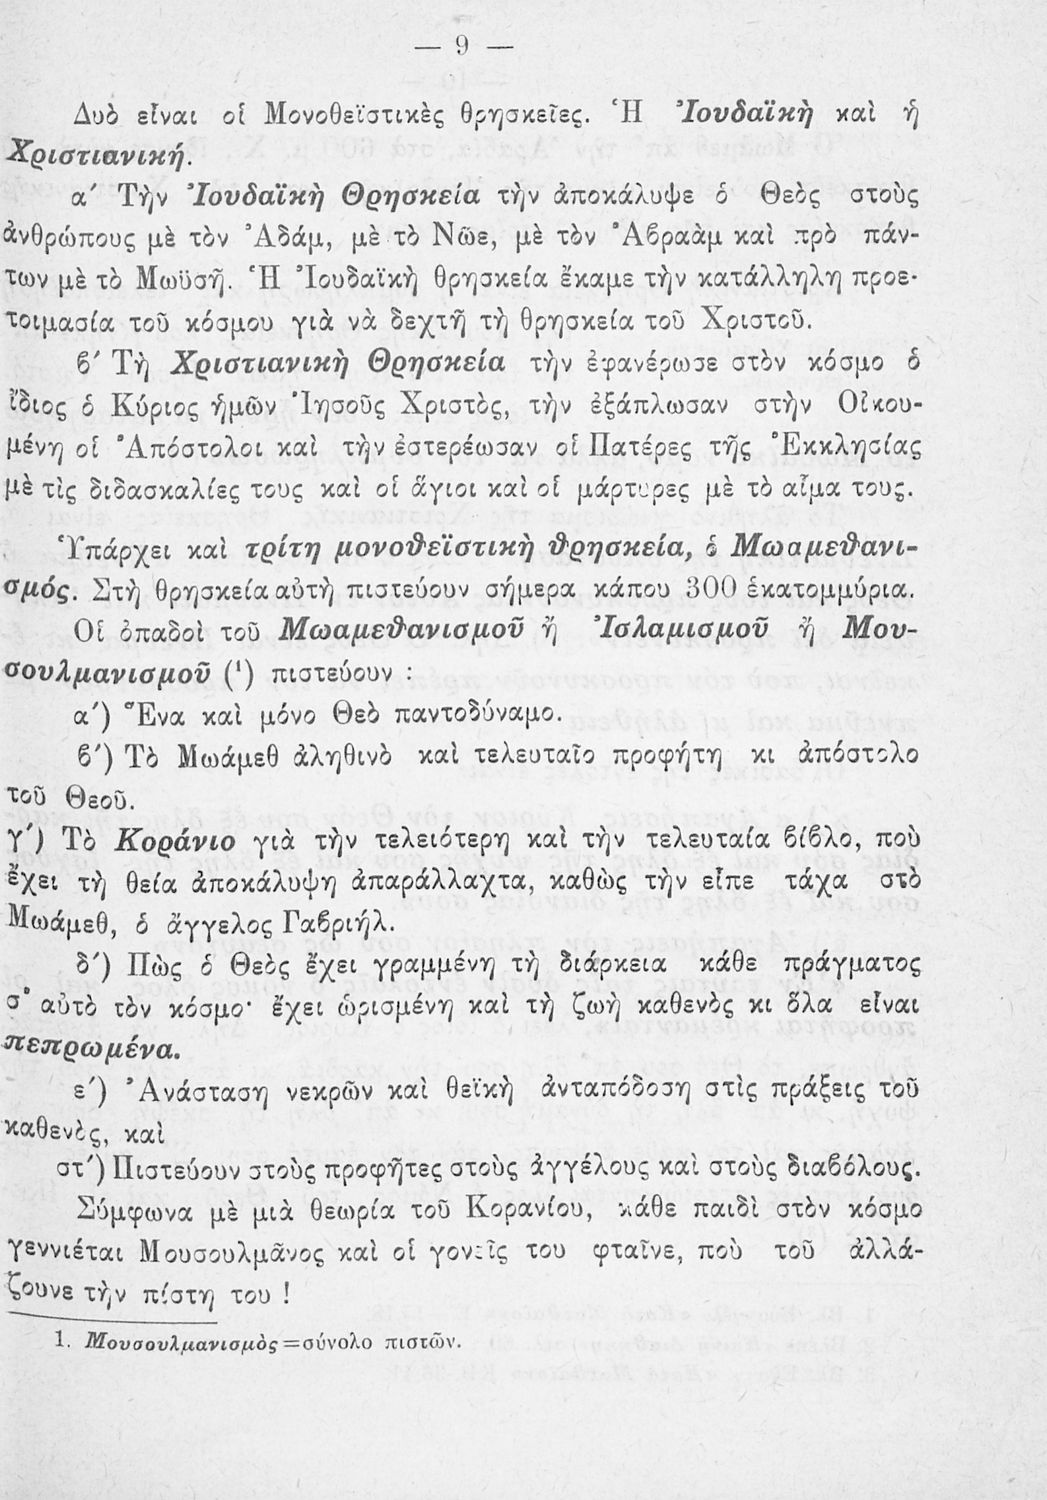 — 9 —
Δυὸ εἶναι οἱ Μονοθεϊστικὲς θρησκεῖες. Ἡ Ἰουδαϊκὴ καὶ ἡ
Χριστιανική.
α′ Τὴν Ἰουδαϊκὴ Θρησκεία τὴν ἀποκάλυψε ὁ Θεὸς στοὺς
ἀνθρώπους μὲ τὸν Ἀδάμ, μὲ τὸ Νῶε, μὲ τὸν Ἀβραὰμ καὶ πρὸ πάν-
των μὲ τὸ Μωϋσῆ. Ἡ Ἰουδαϊκὴ θρησκεία ἔκαμε τὴν κατάλληλη προε-
τοιμασία τοῦ κόσμου γιὰ νὰ δεχτῆ τὴ θρησκεία τοῦ Χριστοῦ.
β′ Τὴ Χριστιανικὴ Θρησκεία τὴν ἐφανέρωσε στὸν κόσμο ὁ
ἴδιος ὁ Κύριος ἡμῶν Ἰησοῦς Χριστὸς, τὴν ἐξάπλωσαν στὴν Οἰκου-
μένη οἱ Ἀπόστολοι καὶ τὴν ἐστερέωσαν οἱ Πατέρες τῆς Ἐκκλησίας
μὲ τὶς διδασκαλίες τους καὶ οἱ ἅγιοι καὶ οἱ μάρτυρες μὲ τὸ αἷμα τους.
Ὑπάρχει καὶ τρίτη μονοθεϊστικὴ θρησκεία, ὁ Μωαμεθανι-
σμός. Στὴ θρησκεία αὐτὴ πιστεύουν σήμερα κάπου 300 ἑκατομμύρια.
Οἱ ὀπαδοὶ τοῦ Μωαμεθανισμοῦ ἢ Ἰσλαμισμοῦ ἢ Μου-
σουλμανισμοῦ (¹) πιστεύουν :
α′) Ἕνα καὶ μόνο Θεὸ παντοδύναμο.
β′) Τὸ Μωάμεθ ἀληθινὸ καὶ τελευταῖο προφήτη κι ἀπόστολο
τοῦ Θεοῦ.
γ′) Τὸ Κοράνιο γιὰ τὴν τελειότερη καὶ τὴν τελευταία βίβλο, ποὺ
ἔχει τὴ θεία ἀποκάλυψη ἀπαράλλαχτα, καθὼς τὴν εἶπε τάχα στὸ
Μωάμεθ, ὁ ἄγγελος Γαβριήλ.
δ′) Πὼς ὁ Θεὸς ἔχει γραμμένη τὴ διάρκεια κάθε πράγματος
σ' αὐτὸ τὸν κόσμο· ἔχει ὡρισμένη καὶ τὴ ζωὴ καθενὸς κι ὅλα εἶναι
πεπρωμένα.
ε′) Ἀνάσταση νεκρῶν καὶ θεϊκὴ ἀνταπόδοση στὶς πράξεις τοῦ
καθενὸς, καὶ
στ′) Πιστεύουν στοὺς προφῆτες στοὺς ἀγγέλους καὶ στοὺς διαβόλους.
Σύμφωνα μὲ μιὰ θεωρία τοῦ Κορανίου, κάθε παιδὶ στὸν κόσμο
γεννιέται Μουσουλμᾶνος καὶ οἱ γονεῖς του φταῖνε, ποὺ τοῦ ἀλλά-
ζουνε τὴν πίστη του !
1. Μουσουλμανισμὸς = σύνολο πιστῶν.